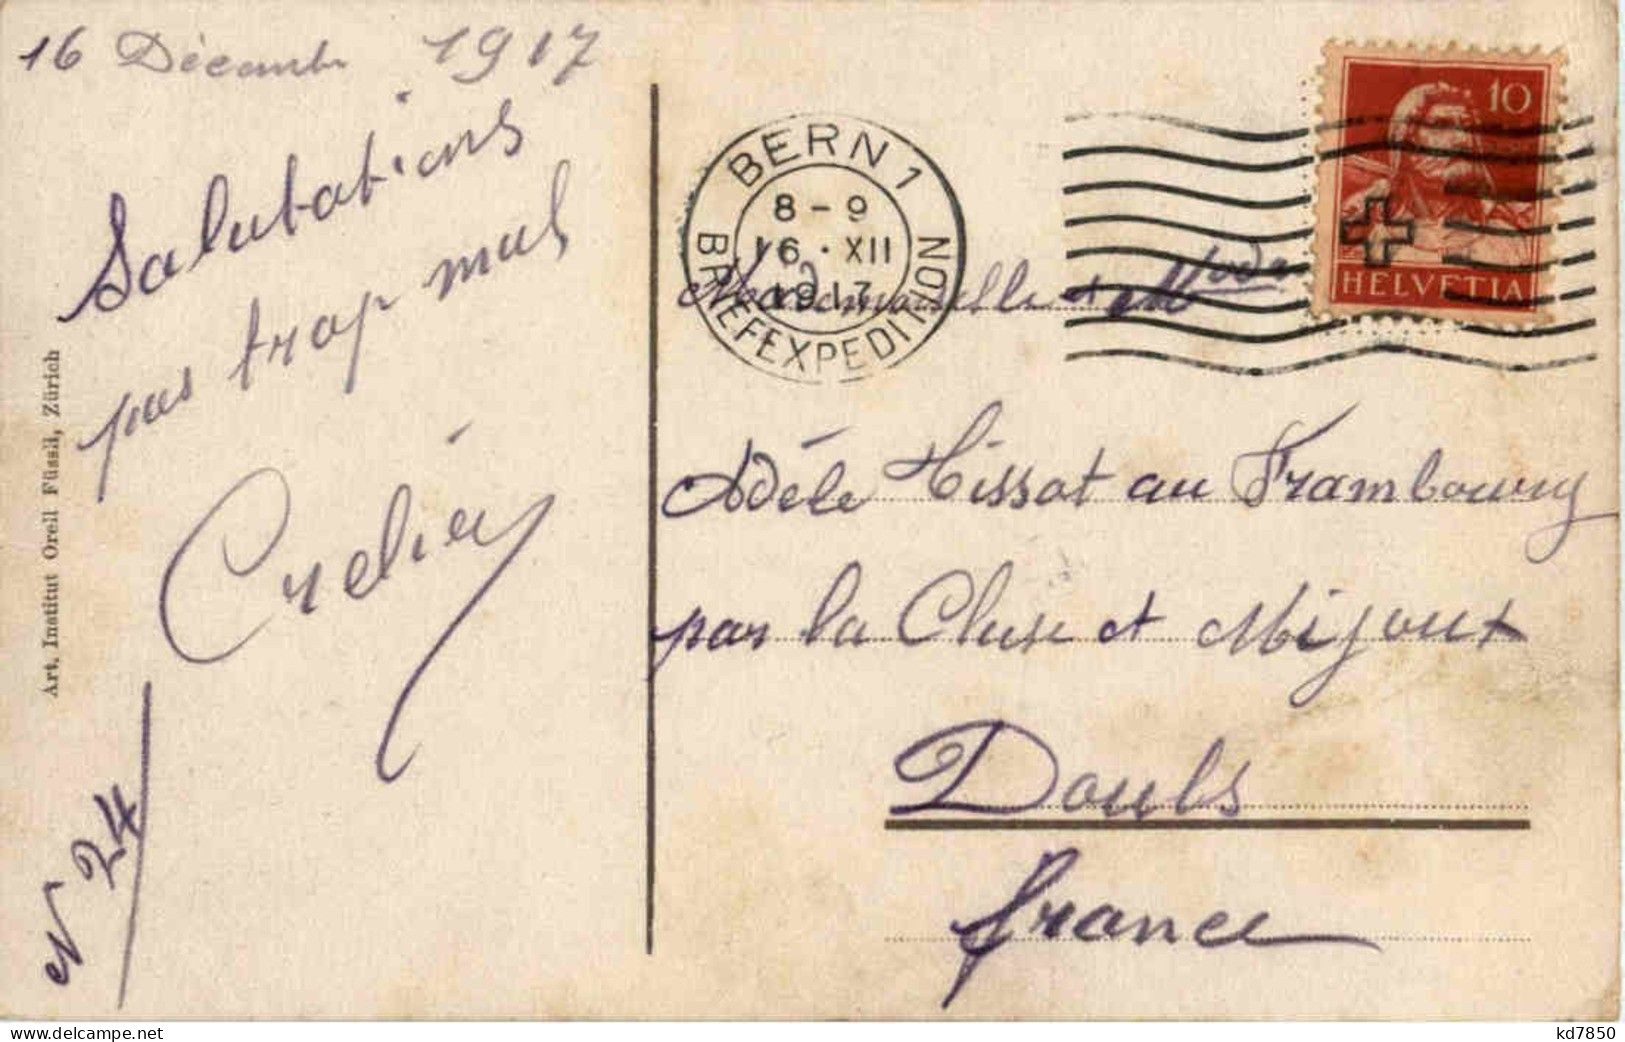 16 Décemb 1917
Salutations
pas trop mal
Crelier
N° 24
Art. Institut Orell Füssli, Zürich
BERN 1
8-9
16 · XII
1917
BRIEFEXPEDITION
10
HELVETIA
Mademoiselle
Adèle Tissot au Frambourg
par la Cluse et Mijoux
Doubs
france
kd7850